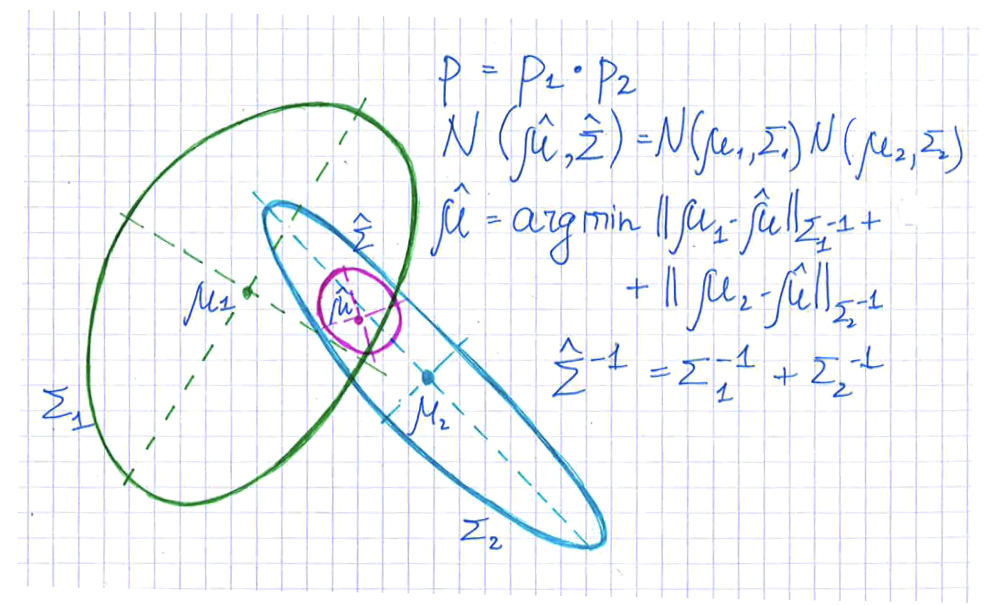 p = p₁ · p₂
N (μ̂, Σ̂) = N(μ₁, Σ₁) N(μ₂, Σ₂)
μ̂ = argmin ||μ₁ - μ̂||Σ₁⁻¹ +
+ || μ₂ - μ̂||Σ₂⁻¹
Σ̂⁻¹ = Σ₁⁻¹ + Σ₂⁻¹
Σ̂
μ₁
μ̂
μ₂
Σ₁
Σ₂